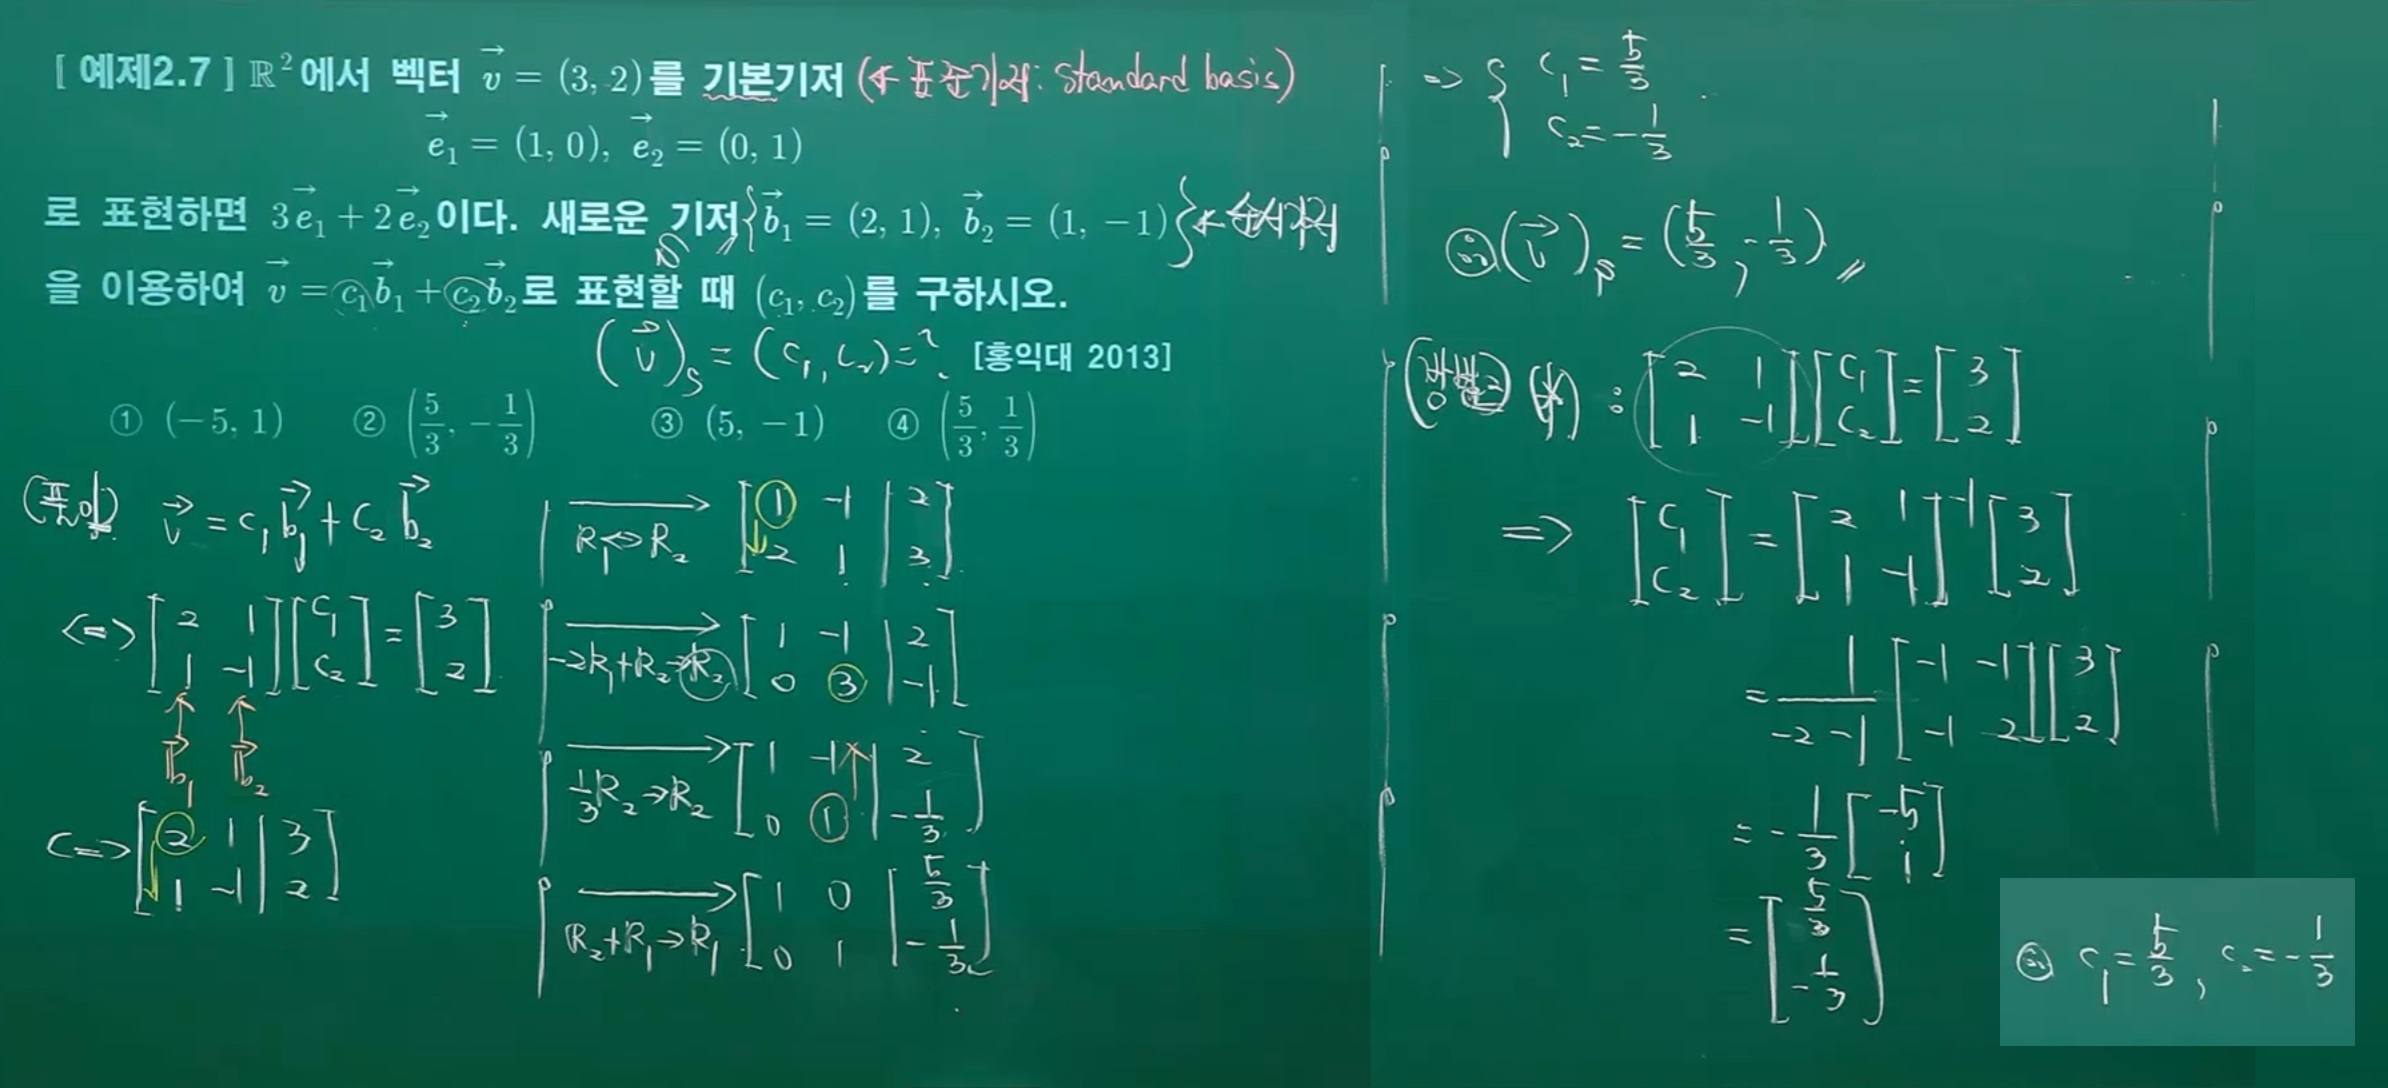 [ 예제2.7 ] ℝ² 에서 벡터 v⃗ = (3, 2)를 기본기저 (← 표준기저: Standard basis)
e⃗₁ = (1, 0), e⃗₂ = (0, 1)
로 표현하면 3e⃗₁ + 2e⃗₂ 이다. 새로운 기저 S = {b⃗₁ = (2, 1), b⃗₂ = (1, -1)} ← 순서기저
을 이용하여 v⃗ = c₁b⃗₁ + c₂b⃗₂로 표현할 때 (c₁, c₂)를 구하시오.
(v⃗)ₛ = (c₁, c₂) = ? [홍익대 2013]
① (-5, 1) ② (5/3, -1/3) ③ (5, -1) ④ (5/3, 1/3)
(풀이) v⃗ = c₁b⃗₁ + c₂b⃗₂
<=> [2 1; 1 -1][c₁; c₂] = [3; 2]
↑ ↑
b⃗₁ b⃗₂
<=> [2 1 | 3; 1 -1 | 2]
R₁↔R₂ → [1 -1 | 2; 2 1 | 3]
-2R₁+R₂→R₂ → [1 -1 | 2; 0 3 | -1]
1/3R₂→R₂ → [1 -1 | 2; 0 1 | -1/3]
R₂+R₁→R₁ → [1 0 | 5/3; 0 1 | -1/3]
=> { c₁ = 5/3
c₂ = -1/3
∴ (v⃗)ₛ = (5/3, -1/3)〃
(방법2) (*) : [2 1; 1 -1][c₁; c₂] = [3; 2]
=> [c₁; c₂] = [2 1; 1 -1]⁻¹ [3; 2]
= 1/(-2-1) [-1 -1; -1 2][3; 2]
= -1/3 [-5; 1]
= [5/3; -1/3]
∴ c₁ = 5/3, c₂ = -1/3